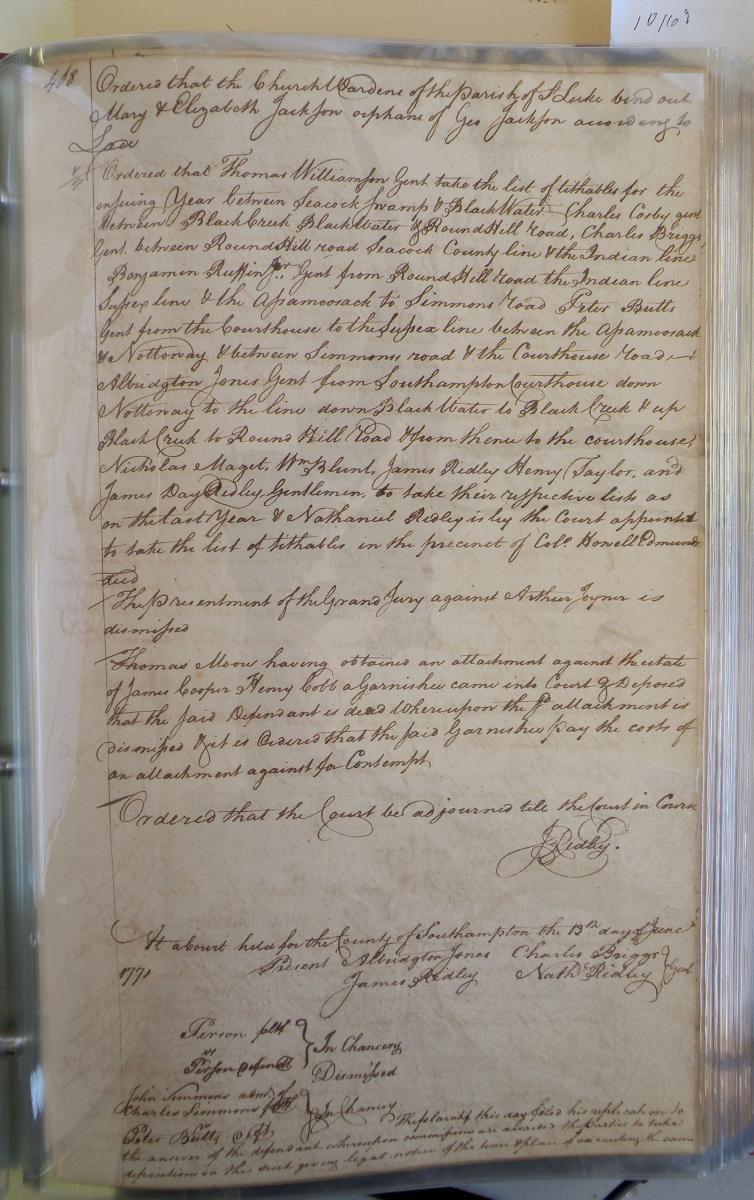 10/69
468
Ordered that the Church Wardens of the Parish of St Luke bind out
Mary & Elizabeth Jackson orphans of Geo Jackson according to
Law
Ordered that Thomas Williamson Gent take the list of tithables for the
ensuing Year between Seacock Swamp & BlackWater Charles Cosby gent
between BlackCreek BlackWater & Round Hill road, Charles Briggs
Gent. between Round Hill road Seacock County line & the Indian line
Benjamin Ruffin Jr. Gent from Round Hill road the Indian line
Sussex line & the Assamoosack to Simmons road Peter Butts
Gent from the Courthouse to the Sussex line between the Assamoosack
& Nottoway & between Simmons road & the Courthouse road
Albridgton Jones Gent from Southampton Courthouse down
Nottoway to the line down BlackWater to Black Creek & up
Black Creek to Round Hill Road & from thence to the courthouse,
Nicholas Maget, Wm Blunt, James Ridley Henry Taylor, and
James Day Ridley, Gentlemen, to take their respective lists as
on the last Year & Nathaniel Ridley is by the Court appointed
to take the list of tithables in the precinct of Colo. Howell Edmunds
decd
The presentment of the Grand Jury against Arthur Joyner is
dismissed
Thomas Moore having obtained an attachment against the estate
of James Cooper Henry Cobb a Garnishee came into Court & Deposed
that the said Defendant is dead Whereupon the sd attachment is
dismissed & it is Ordered that the said Garnishee pay the costs of
an attachment against for Contempt
Ordered that the Court be adjourned till the Court in Course
J Ridley.
At a Court held for the County of Southampton the 13th day of June
1771 Present Albridgton Jones Charles Briggs
James Ridley Nath Ridley } Gent
Person plt
vs } In Chancery
Person defendt
Dismissed
John Simmons adm. of
Charles Simmons plt } In Chancery.
vs The plaintf this day filed his replication to
Peter Butts deft
the answer of the defendant whereupon commissions are awarded the parties to take
depositions in this suit giving legal notice of the time & place of executing the same